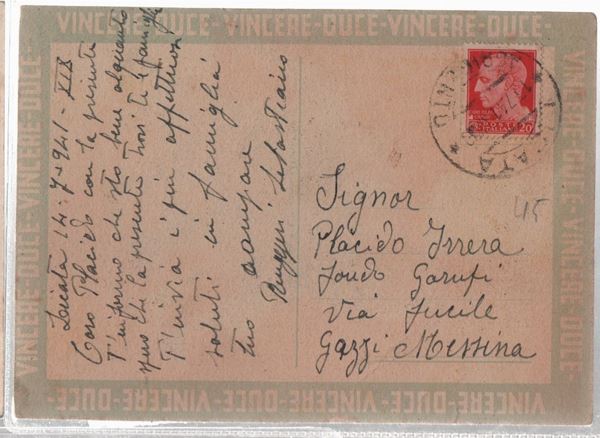 VINCERE-DUCE-VINCERE-DUCE-VINCERE-DUCE-
Licata 14-7-941-XIX
Caro Placido con la presente
T'informo che sto bene altrettanto
spero che la presente trovi te e famiglia
T'invia i più affettuosi
saluti in famiglia
tuo compare
Ruggeri Sebastiano
POSTE ITALIANE
20
LICATA
AGRIGENTO
Signor
Placido Irrera
fondo Garufi
Via Fucile
Gazzi Messina
45
VINCERE-DUCE-VINCERE-DUCE-
VINCERE-DUCE-VINCERE-DUCE-
VINCERE-DUCE-VINCERE-DUCE-VINCERE-DUCE-